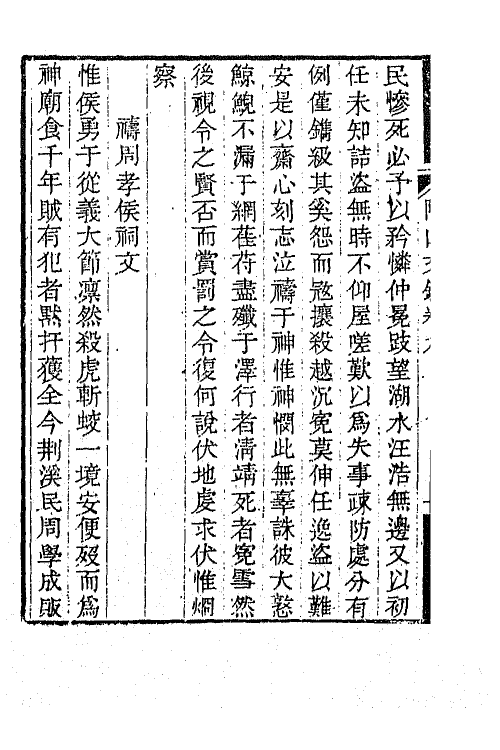 民慘死必予以矜憐仲冕跂望湖水汪浩無邊又以初
任未知詰盜無時不仰屋嗟歎以爲失事疎防處分有
例僅鐫級其奚怨而寇攘殺越沉寃莫伸任逸盜以難
安是以齋心刻志泣禱于神惟神憫此無辜誅彼大憝
鯨鯢不漏于網萑苻盡殲于澤行者清靖死者寃雪然
後視令之賢否而賞罰之令復何說伏地虔求伏惟烱
察
禱周孝侯祠文
惟侯勇于從義大節凛然殺虎斬蛟一境安便歿而爲
神廟食千年賊有犯者黙扞獲全今荆溪民周學成販